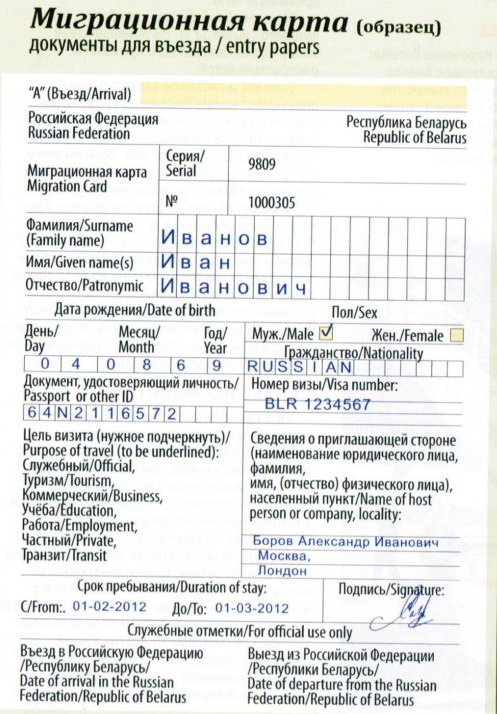 Миграционная карта (образец)
документы для въезда / entry papers
"А" (Въезд/Arrival)
Российская Федерация
Russian Federation
Республика Беларусь
Republic of Belarus
Миграционная карта
Migration Card
Серия/
Serial
9809
№
1000305
Фамилия/Surname
(Family name)
Иванов
Имя/Given name(s)
Иван
Отчество/Patronymic
Иванович
Дата рождения/Date of birth
Пол/Sex
День/
Day
Месяц/
Month
Год/
Year
Муж./Male
Жен./Female
040869
Гражданство/Nationality
RUSSIAN
Документ, удостоверяющий личность/
Passport or other ID
64N2116572
Номер визы/Visa number:
BLR 1234567
Цель визита (нужное подчеркнуть)/
Purpose of travel (to be underlined):
Служебный/Official,
Туризм/Tourism,
Коммерческий/Business,
Учёба/Education,
Работа/Employment,
Частный/Private,
Транзит/Transit
Сведения о приглашающей стороне
(наименование юридического лица,
фамилия,
имя, (отчество) физического лица),
населенный пункт/Name of host
person or company, locality:
Боров Александр Иванович
Москва,
Лондон
Срок пребывания/Duration of stay:
С/From:. 01-02-2012 До/To: 01-03-2012
Подпись/Signature:
Служебные отметки/For official use only
Въезд в Российскую Федерацию
/Республику Беларусь/
Date of arrival in the Russian
Federation/Republic of Belarus
Выезд из Российской Федерации
/Республики Беларусь/
Date of departure from the Russian
Federation/Republic of Belarus